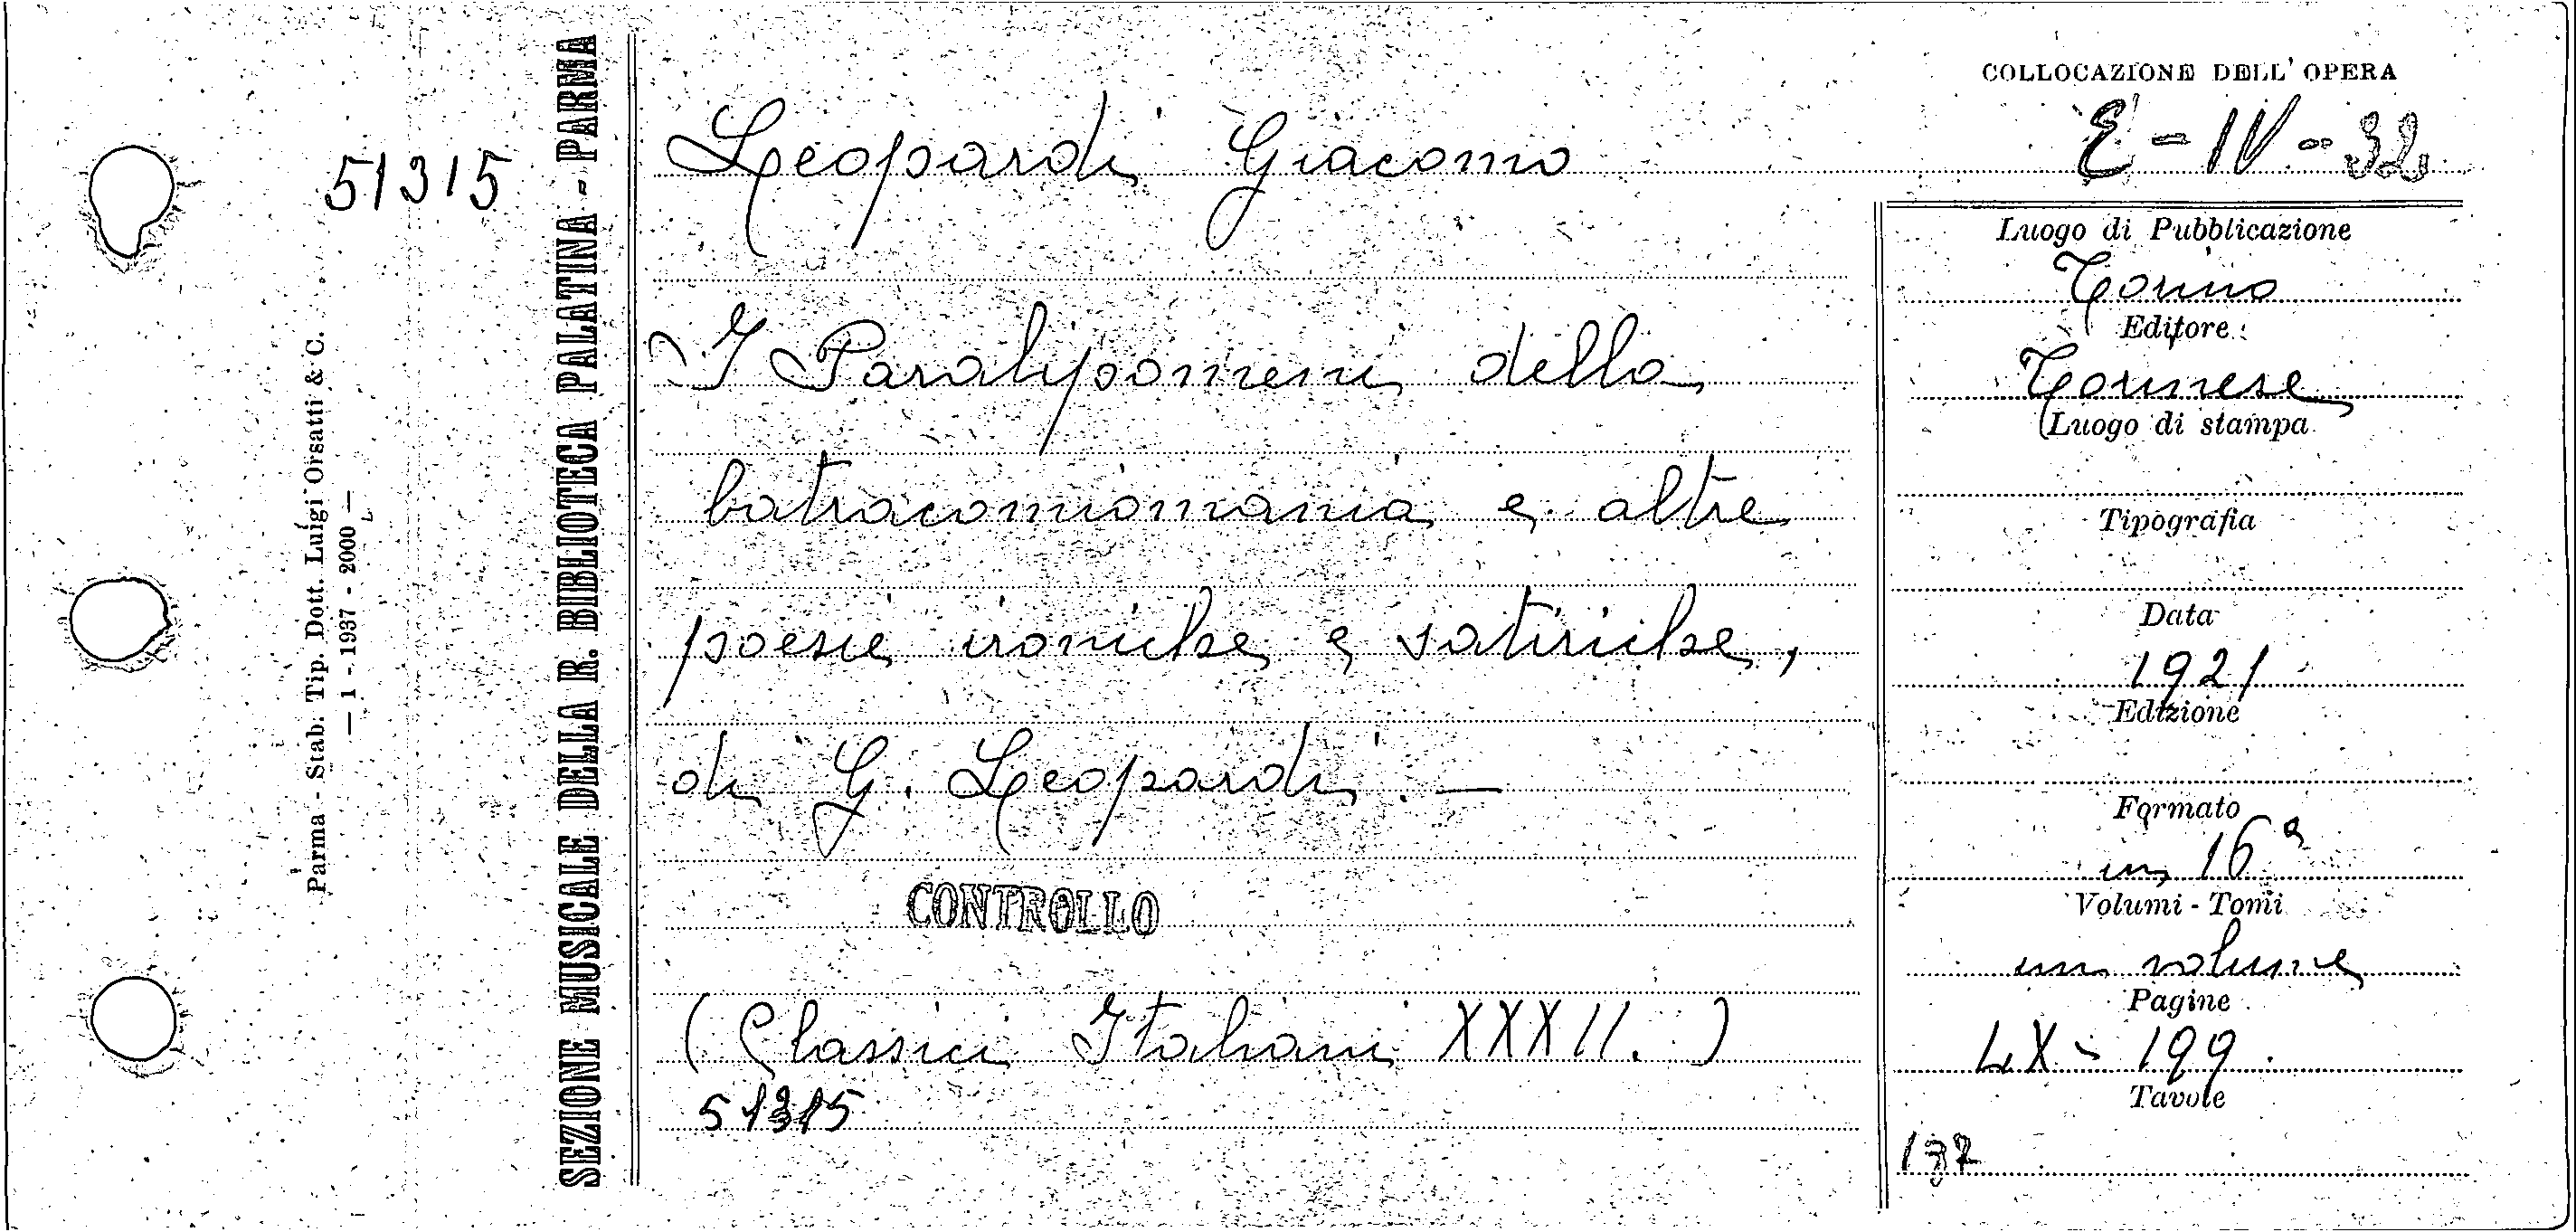 51315
Parma - Stab. Tip. Dott. Luigi Orsatti & C.
— 1 - 1937 - 2000 —
SEZIONE MUSICALE DELLA R. BIBLIOTECA PALATINA - PARMA
Leopardi Giacomo
I Paralipomeni della
batracomiomania e altre
poesie ironiche e satiriche,
di G. Leopardi. —
CONTROLLO
(Classici Italiani XXXII.)
51315
COLLOCAZIONE DELL'OPERA
E - IV - 32
Luogo di Pubblicazione
Torino
Editore
Torinese
Luogo di stampa
Tipografia
Data
1921
Edizione
Formato
in 16°
Volumi - Tomi
un volume
Pagine
LX - 199.
Tavole